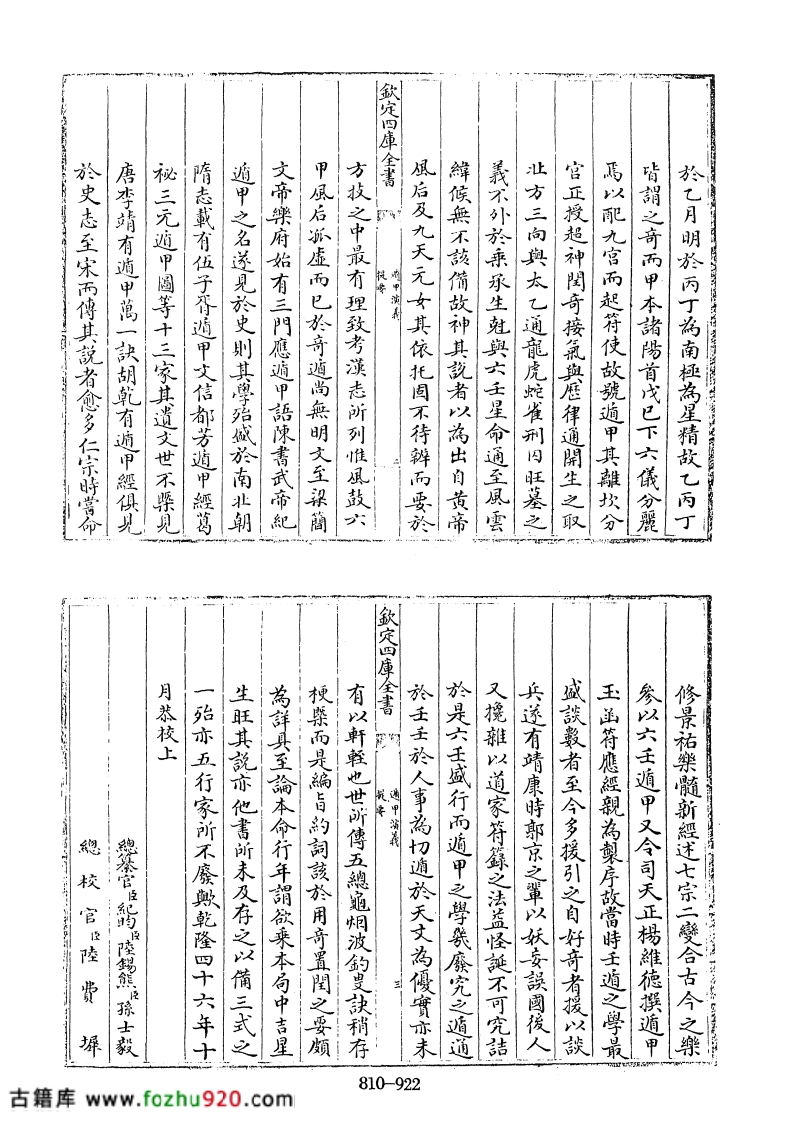 於乙月明於丙丁為南極為星精故乙丙丁
皆謂之奇而甲本諸陽首戊已下六儀分麗
焉以配九宮而起符使故號遁甲其離坎分
宮正授超神閏奇接氣與歴律通開生之取
北方三向與太乙通龍虎蛇雀刑囚旺墓之
義不外於乗承生尅與六壬星命通至風雲
緯候無不該備故神其說者以為出自黄帝
風后及九天元女其依托固不待辨而要於
欽定四庫全書
遁甲演義
提要
二
方技之中最有理致考漢志所列惟風鼓六
甲風后孤虛而已於奇遁尚無明文至梁簡
文帝樂府始有三門應遁甲語陳書武帝紀
遁甲之名遂見於史則其學殆盛於南北朝
隋志載有伍子胥遁甲文信都芳遁甲經葛
祕三元遁甲圖等十三家其遺文世不槩見
唐李靖有遁甲萬一訣胡乾有遁甲經俱見
於史志至宋而傳其說者愈多仁宗時嘗命
修景祐樂髓新經述七宗二變合古今之樂
參以六壬遁甲又令司天正楊維德撰遁甲
玉函符應經親為製序故當時壬遁之學最
盛談數者至今多援引之自好奇者援以談
兵遂有靖康時郭京之輩以妖妄誤國後人
又攙雜以道家符籙之法益怪誕不可究詰
於是六壬盛行而遁甲之學幾廢究之遁通
於壬壬於人事為切遁於天文為優實亦未
欽定四庫全書
遁甲演義
提要
三
有以軒輊也世所傳五總龜烟波釣叟訣稍存
梗槩而是編旨約詞該於用奇置閏之要頗
為詳具至論本命行年謂欲乘本局中吉星
生旺其說亦他書所未及存之以備三式之
一殆亦五行家所不廢歟乾隆四十六年十
月恭校上
總纂官臣紀昀臣陸錫熊臣孫士毅
總校官臣陸費墀
810-922
古籍库 www.fozhu920.com